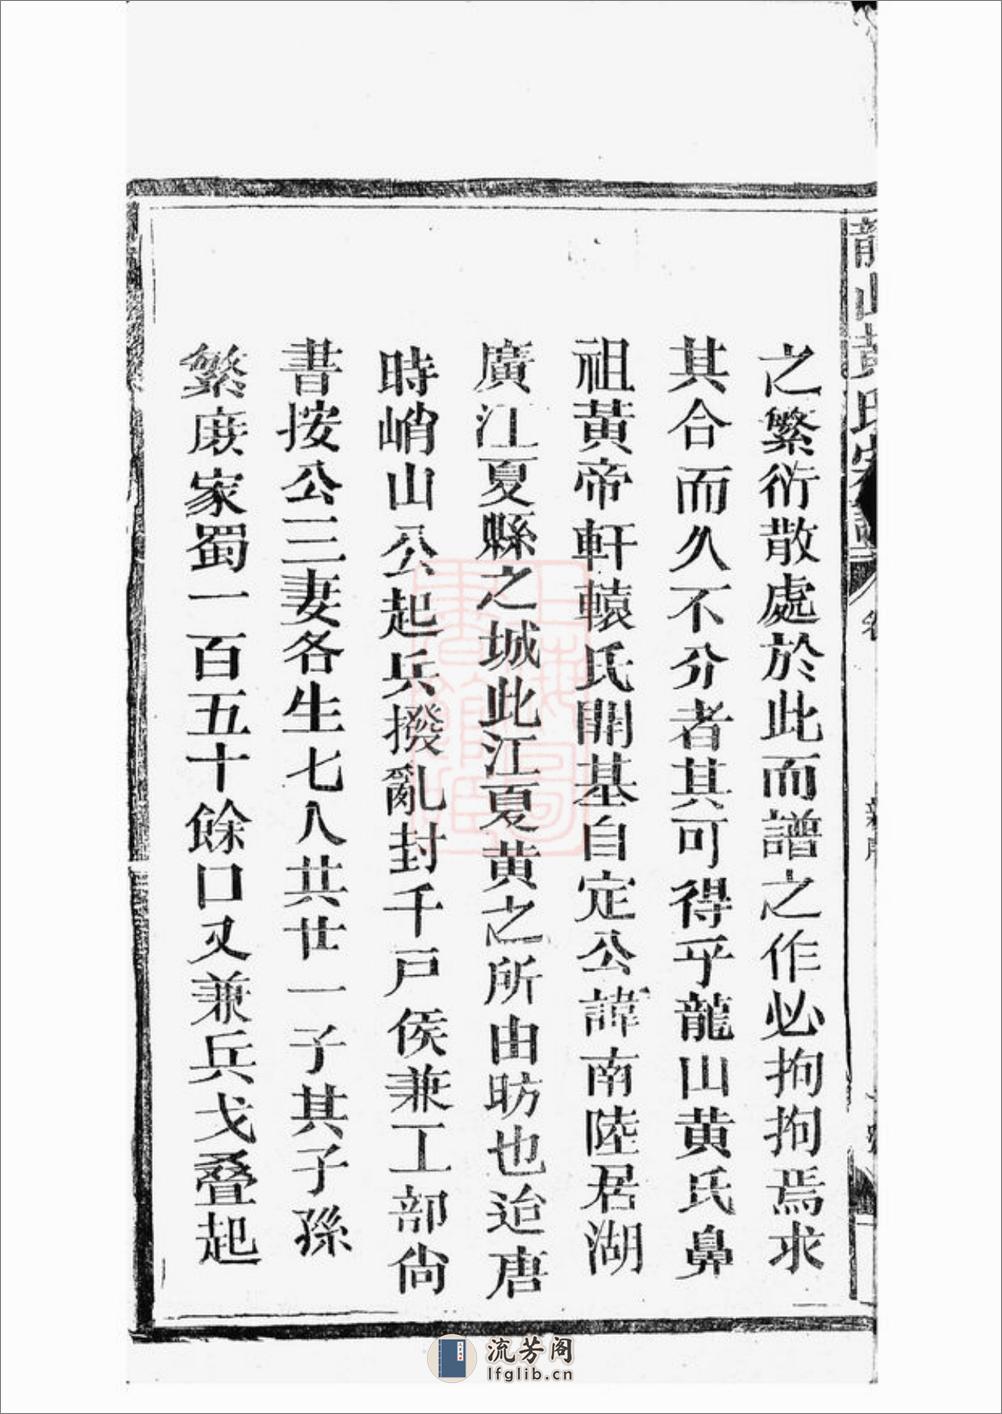 龍山黃氏宗譜
之繁衍散處於此而譜之作必拘拘焉求
其合而久不分者其可得乎龍山黄氏鼻
祖黃帝軒轅氏開基自定公諱南陸居湖
廣江夏縣之城此江夏黄之所由昉也迨唐
時峭山公起兵撥亂封千戸侯兼工部尙
書按公三妻各生七人共廿一子其子孫
繁庻家蜀一百五十餘口又兼兵戈叠起
上海圖書館藏
流芳阁
lfglib.cn